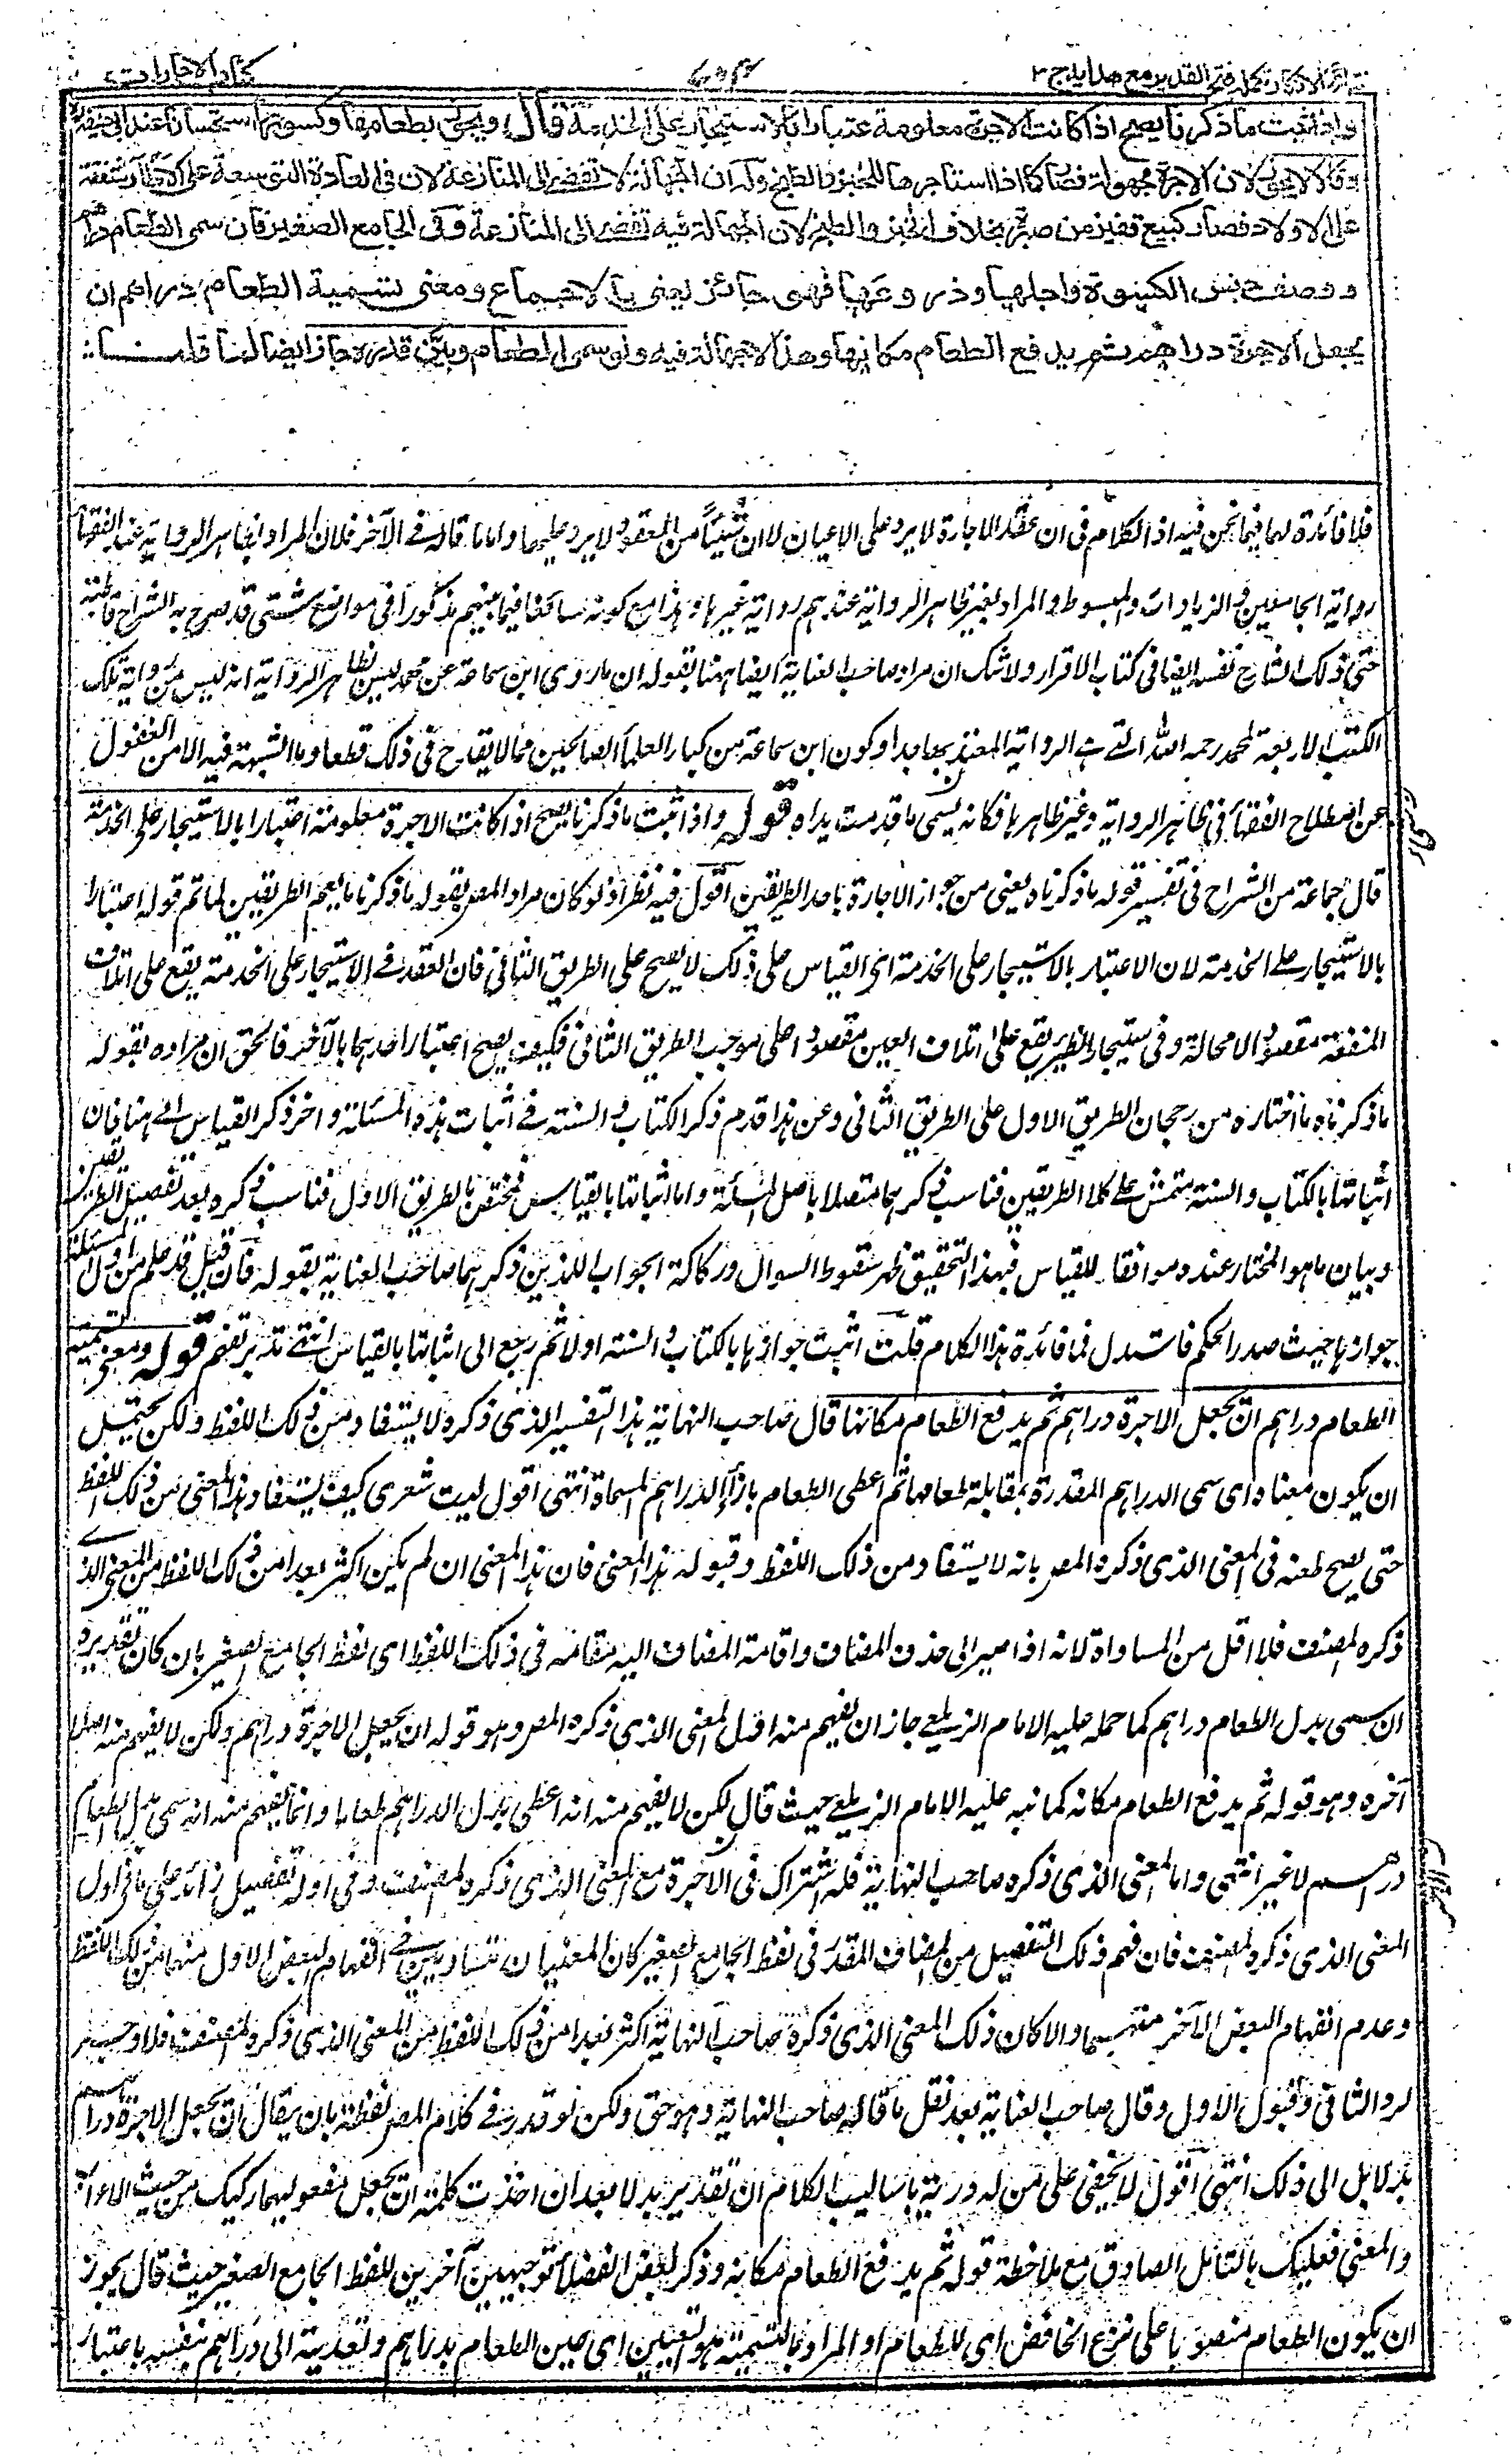 نتائج الافكار تكملة فتح القدير مع هدايه ج ٣
كتاب الاجارات
واذا ثبت ما ذكرنا يصح اذا كانت الاجرة معلومة اعتبارا بالاستيجار على الخدمة قال ويجوز بطعامها وكسوتها استحسانا عند ابي حنيفة
وقالا لا يجوز لان الاجرة مجهولة فصار كما اذا استاجرها للخبز والطبخ وله ان الجهالة لا تفضى الى المنازعة لان في العادة التوسعة على الاظآر شفقة
على الاولاد فصار كبيع قفيز من صبرة بخلاف الخبز والطبخ لان الجهالة فيه تفضى الى المنازعة وفي الجامع الصغير فان سمى الطعام دراهم
ووصف جنس الكسوة واجلها وذرعها فهو جائز يعنى بالاجماع ومعنى تسمية الطعام دراهم ان
يجعل الاجرة دراهم ثم يدفع الطعام مكانها وهذا لا جهالة فيه ولو سمى الطعام وبين قدره جاز ايضا لما قلنا
فلا فائدة لها فيما نحن فيه اذ الكلام في ان عقد الاجارة لا يرد على الاعيان لا ان شيئا من العقود لا يرد عليها واما ما قاله في الآخر فلان المراد بظاهر الرواية عند الفقهاء
رواية الجامعين والزيادات والمبسوط والمراد بغير ظاهر الرواية عندهم رواية غيرها وهذا مع كونه شائعا فيما بينهم مذكورا في مواضع شتى قد صرح به الشراح قاطبة
حتى ذلك الشارح نفسه ايضا في كتاب الاقرار ولا شك ان مراد صاحب العناية ايضا ههنا بقوله ان ما روى ابن سماعة عن محمد ليس بظاهر الرواية انه ليس من رواية تلك
الكتب الاربعة لمحمد رحمه الله التي هي الرواية المعتد بها جدا وكون ابن سماعة من كبار العلماء الصالحين مما لا يقدح في ذلك قطعا وما الشبهة فيه الا من الغفول
عن اصطلاح الفقهاء في ظاهر الرواية وغير ظاهرها فكانه ليس ما قدمت يداه قوله واذا ثبت ما ذكرنا يصح اذا كانت الاجرة معلومة اعتبارا بالاستيجار على الخدمة
قال جماعة من الشراح في تفسير قوله ما ذكرناه يعنى من جواز الاجارة باحد الطريقين اقول فيه نظر اذ لو كان مراد المص بقوله ما ذكرنا ما يعم الطريقين لما تم قوله اعتبارا
بالاستيجار على الخدمة لان الاعتبار بالاستيجار على الخدمة اى القياس على ذلك لا يصح على الطريق الثاني فان العقد في الاستيجار على الخدمة يقع على اتلاف
المنفعة مقصودا لا محالة وفي استيجار الظئر يقع على اتلاف العين مقصودا على موجب الطريق الثاني فكيف يصح اعتبار احدهما بالآخر فالحق ان مراده بقوله
ما ذكرناه ما اختاره من رجحان الطريق الاول على الطريق الثاني وعن هذا قدم ذكر الكتاب والسنة في اثبات هذه المسئلة واخر ذكر القياس الى هنا فان
اثباتها بالكتاب والسنة متمش على كلا الطريقين فناسب ذكرهما متصلا باصل المسئلة واما اثباتها بالقياس فمختص بالطريق الاول فناسب ذكره بعد تفصيل الطريقين
وبيان ما هو المختار عنده موافقا للقياس فبهذا التحقيق ظهر سقوط السوال وركاكة الجواب اللذين ذكرهما صاحب العناية بقوله فان قيل قد علم من اول المسئلة
جوازها حيث صدر الحكم فاستدل فما فائدة هذا الكلام قلت اثبت جوازها بالكتاب والسنة اولا ثم رجع الى اثباتها بالقياس انتهى تدبر تفهم قوله ومعنى تسمية
الطعام دراهم ان يجعل الاجرة دراهم ثم يدفع الطعام مكانها قال صاحب النهاية هذا التفسير الذى ذكره لا يستفاد من ذلك اللفظ ولكن يحتمل
ان يكون معناه اى سمى الدراهم المقدرة بمقابلة طعامها ثم اعطى الطعام بازاء الدراهم المسماة انتهى اقول ليت شعرى كيف يستفاد هذا المعنى من ذلك اللفظ
حتى يصح طعنه في المعنى الذى ذكره المص بانه لا يستفاد من ذلك اللفظ وقبوله هذا المعنى فان هذا المعنى ان لم يكن اكثر بعدا من ذلك اللفظ من المعنى الذى
ذكره المصنف فلا اقل من المساواة لانه اذا صير الى حذف المضاف واقامة المضاف اليه مقامه في ذلك اللفظ اى لفظ الجامع الصغير بان كان تقديره
ان سمى بدل الطعام دراهم كما حمله عليه الامام الزيلعى جاز ان يفهم منه اول المعنى الذى ذكره المص وهو قوله ان يجعل الاجرة دراهم ولكن لا يفهم منه اصلا
آخره وهو قوله ثم يدفع الطعام مكانه كما نبه عليه الامام الزيلعى حيث قال لكن لا يفهم منه انه اعطى بدل الدراهم طعاما وانما يفهم منه انه سمى بدل الطعام
دراهم لا غير انتهى واما المعنى الذى ذكره صاحب النهاية فله اشتراك في الآخر مع المعنى الذى ذكره المصنف وفي اوله تفصيل زائد على ما في اول
المعنى الذى ذكره المصنف فان فهم ذلك التفصيل من المضاف المقدر في لفظ الجامع الصغير كان المعنيان متساويين في انفهام البعض الاول منهما من ذلك اللفظ
وعدم انفهام البعض الآخر منهما والا كان ذلك المعنى الذى ذكره صاحب النهاية اكثر بعدا من ذلك اللفظ من المعنى الذى ذكره المصنف فلا وجه
لرد الثاني وقبول الاول وقال صاحب العناية بعد نقل ما قاله صاحب النهاية وهو حق ولكن لو قدر في كلام المص لفظة بان يقال ان يجعل الاجرة دراهم
بدلا بل الى ذلك انتهى اقول لا يخفى على من له دربة باساليب الكلام ان تقدير بدلا بعد ان اخذت كلمة ان يجعل مفعوليها ركيك من حيث الاعراب
والمعنى فعليك بالتامل الصادق مع ملاحظة قوله ثم يدفع الطعام مكانه وذكر بعض الفضلاء توجيهين آخرين للفظ الجامع الصغير حيث قال يجوز
ان يكون الطعام منصوبا على نزع الخافض اى للطعام او المراد بالتسمية هو التعيين اى عين الطعام بدراهم وتعديته الى دراهم بنفسه باعتبار